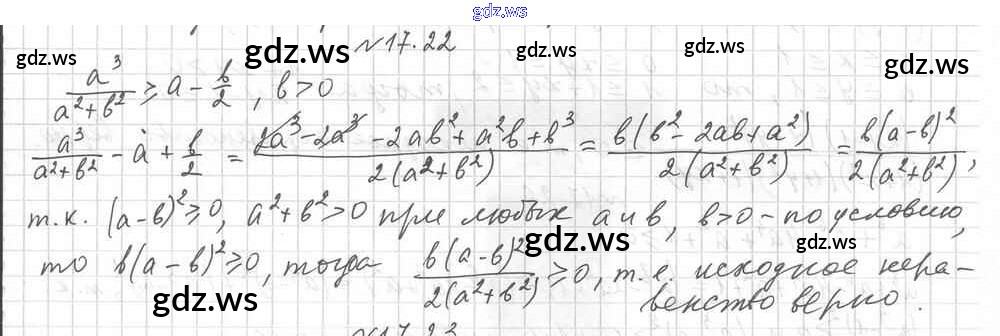 gdz.ws
gdz.ws gdz.ws gdz.ws gdz.ws gdz.ws
№17.22
a³/(a²+b²) ≥ a - b/2, b>0
a³/(a²+b²) - a + b/2 = (2a³-2a³-2ab²+a²b+b³)/(2(a²+b²)) = b(b²-2ab+a²)/(2(a²+b²)) = b(a-b)²/(2(a²+b²)),
т.к. (a-b)²≥0, a²+b²>0 при любых a и b, b>0 - по условию,
gdz.ws gdz.ws gdz.ws
то b(a-b)²≥0, тогда b(a-b)²/(2(a²+b²)) ≥0, т.е. исходное нера-
венство верно.
gdz.ws gdz.ws gdz.ws
№17.23